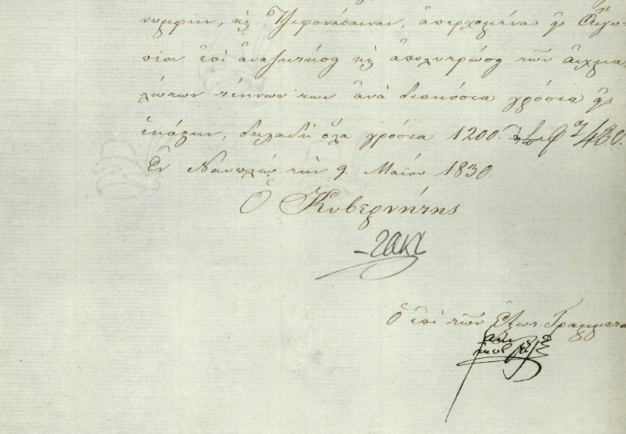 νύμφην, κὴ Τζεφονάσαιναν, ἀπερχομένας εἰς Αἴγυ-
πτον ἐπὶ ἀναζητήσει κὴ ἀπολυτρώσει τῶν αἰχμα-
λώτων τέκνων των ἀνὰ διακόσια γρόσια εἰς
ἑκάστην, δηλαδὴ ὅλα γρόσια 1200. 480.
Ἐν Ναυπλίῳ τὴν 9. Μαΐου 1830.
Ὁ Κυβερνήτης
Ὁ ἐπὶ τῶν Ἐξωτ. Γραμματεὺς